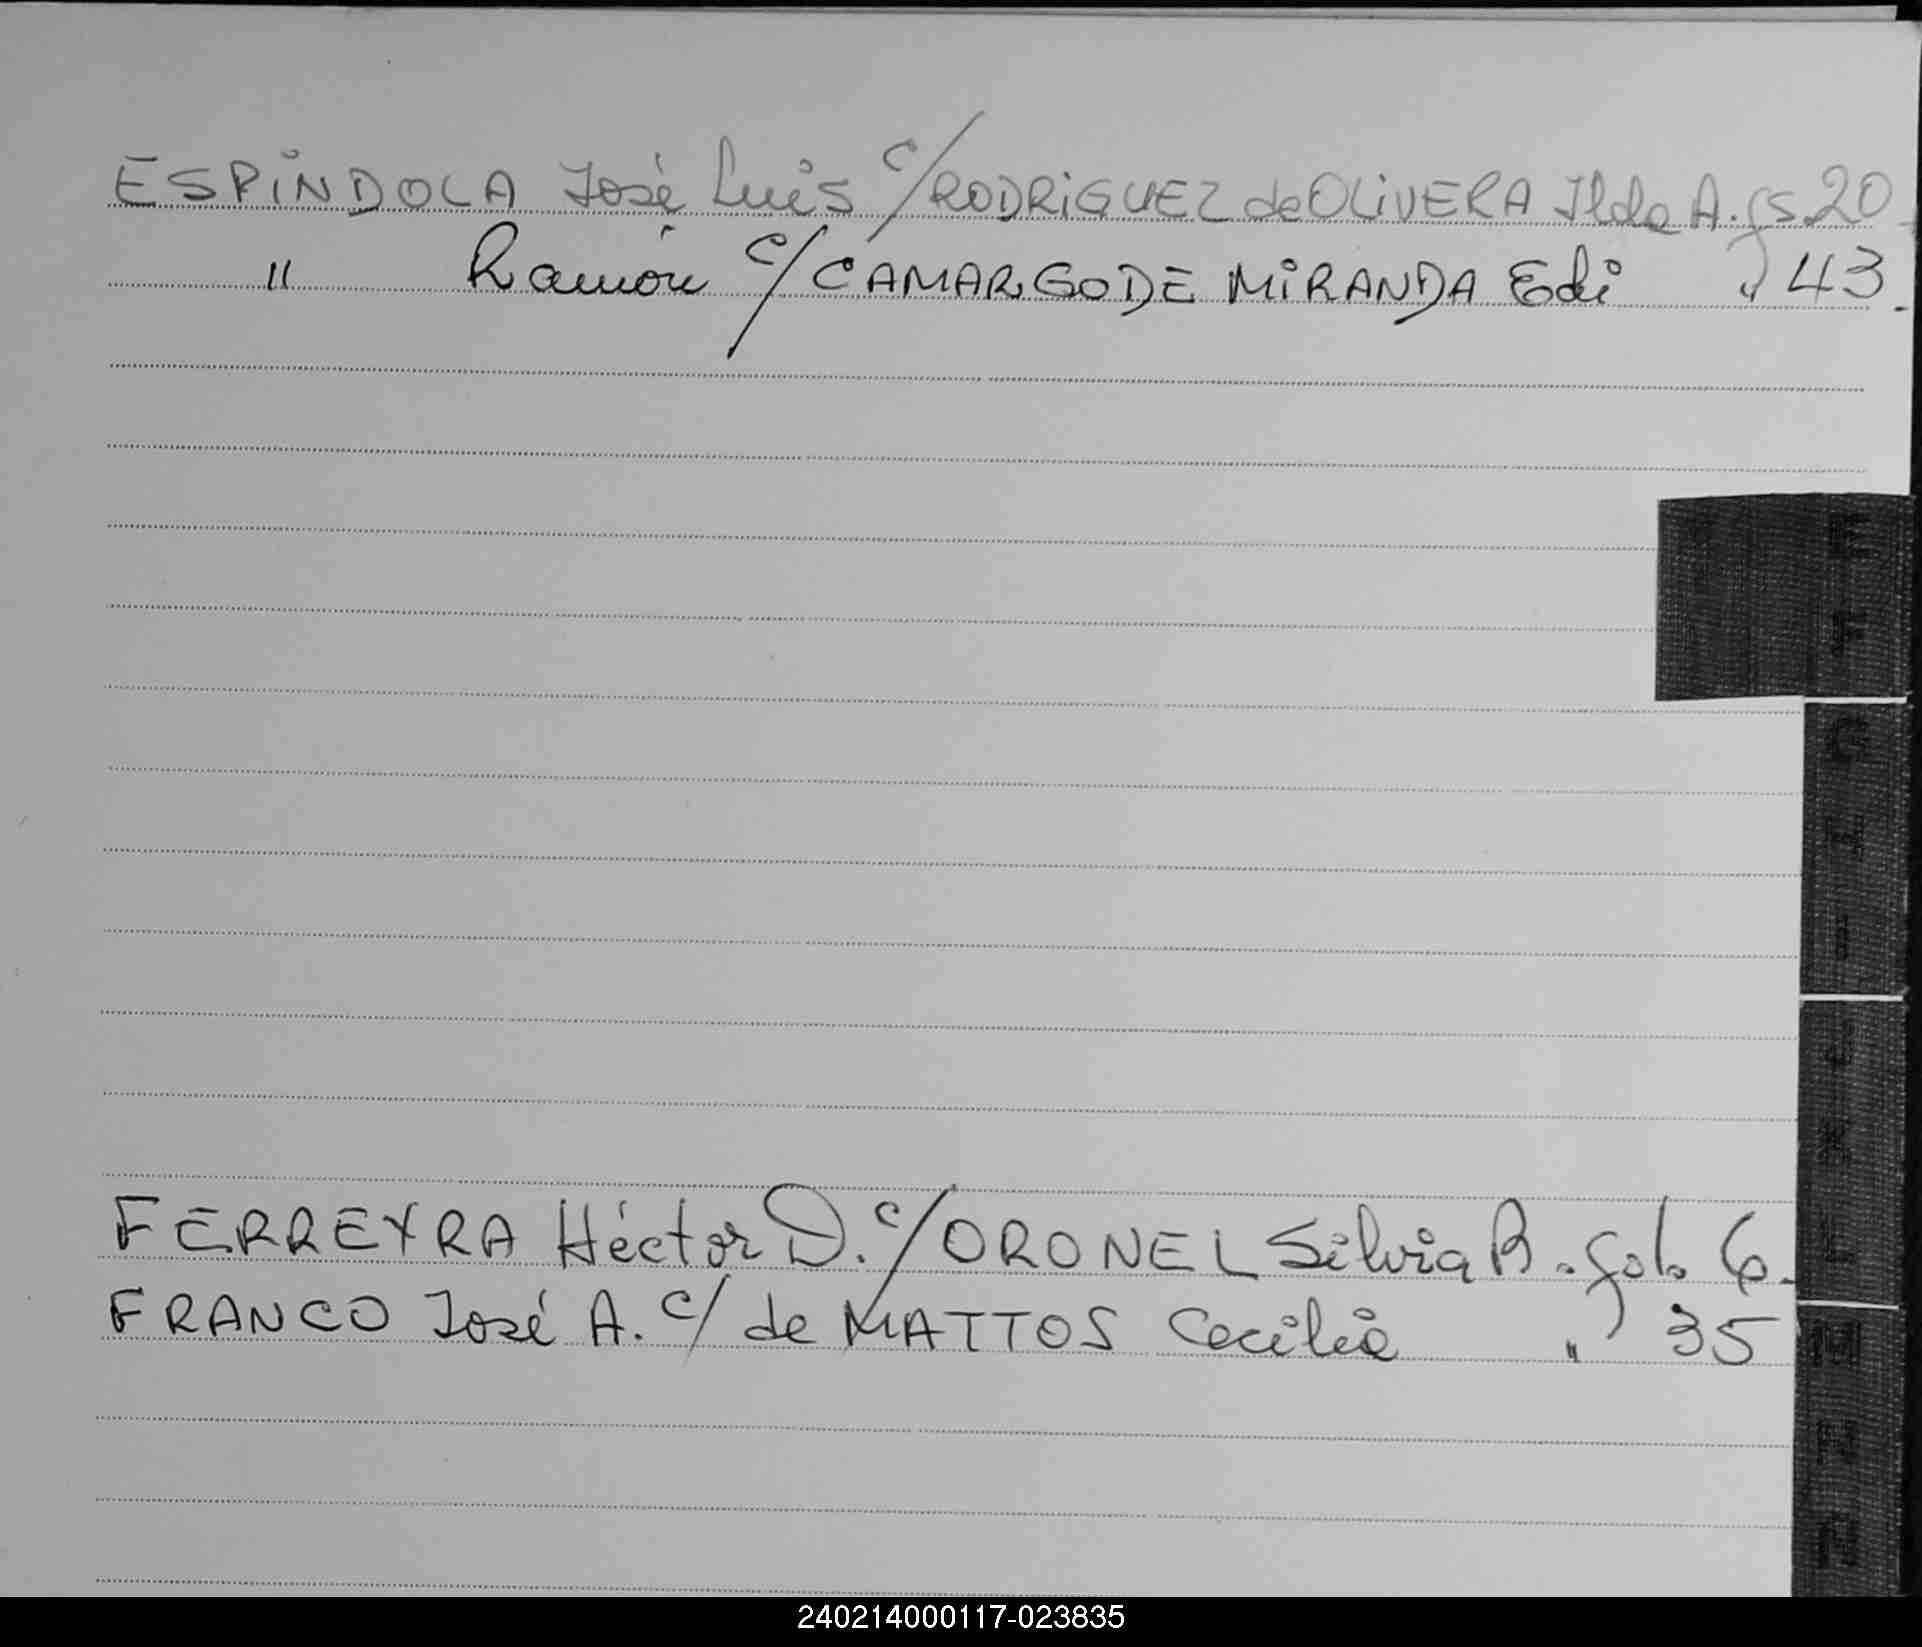 ESPINDOLA José Luis c/ RODRIGUEZ de OLIVERA Ilda A. fs. 20
" Ramón c/ CAMARGO DE MIRANDA Edi " 43.
E
F
G
H
I
J
K
L
FERREYRA Héctor D. c/ ORONEL Silvia B. fol. 6.
FRANCO José A. c/ de MATTOS Cecilia " 35
M
N
240214000117-023835